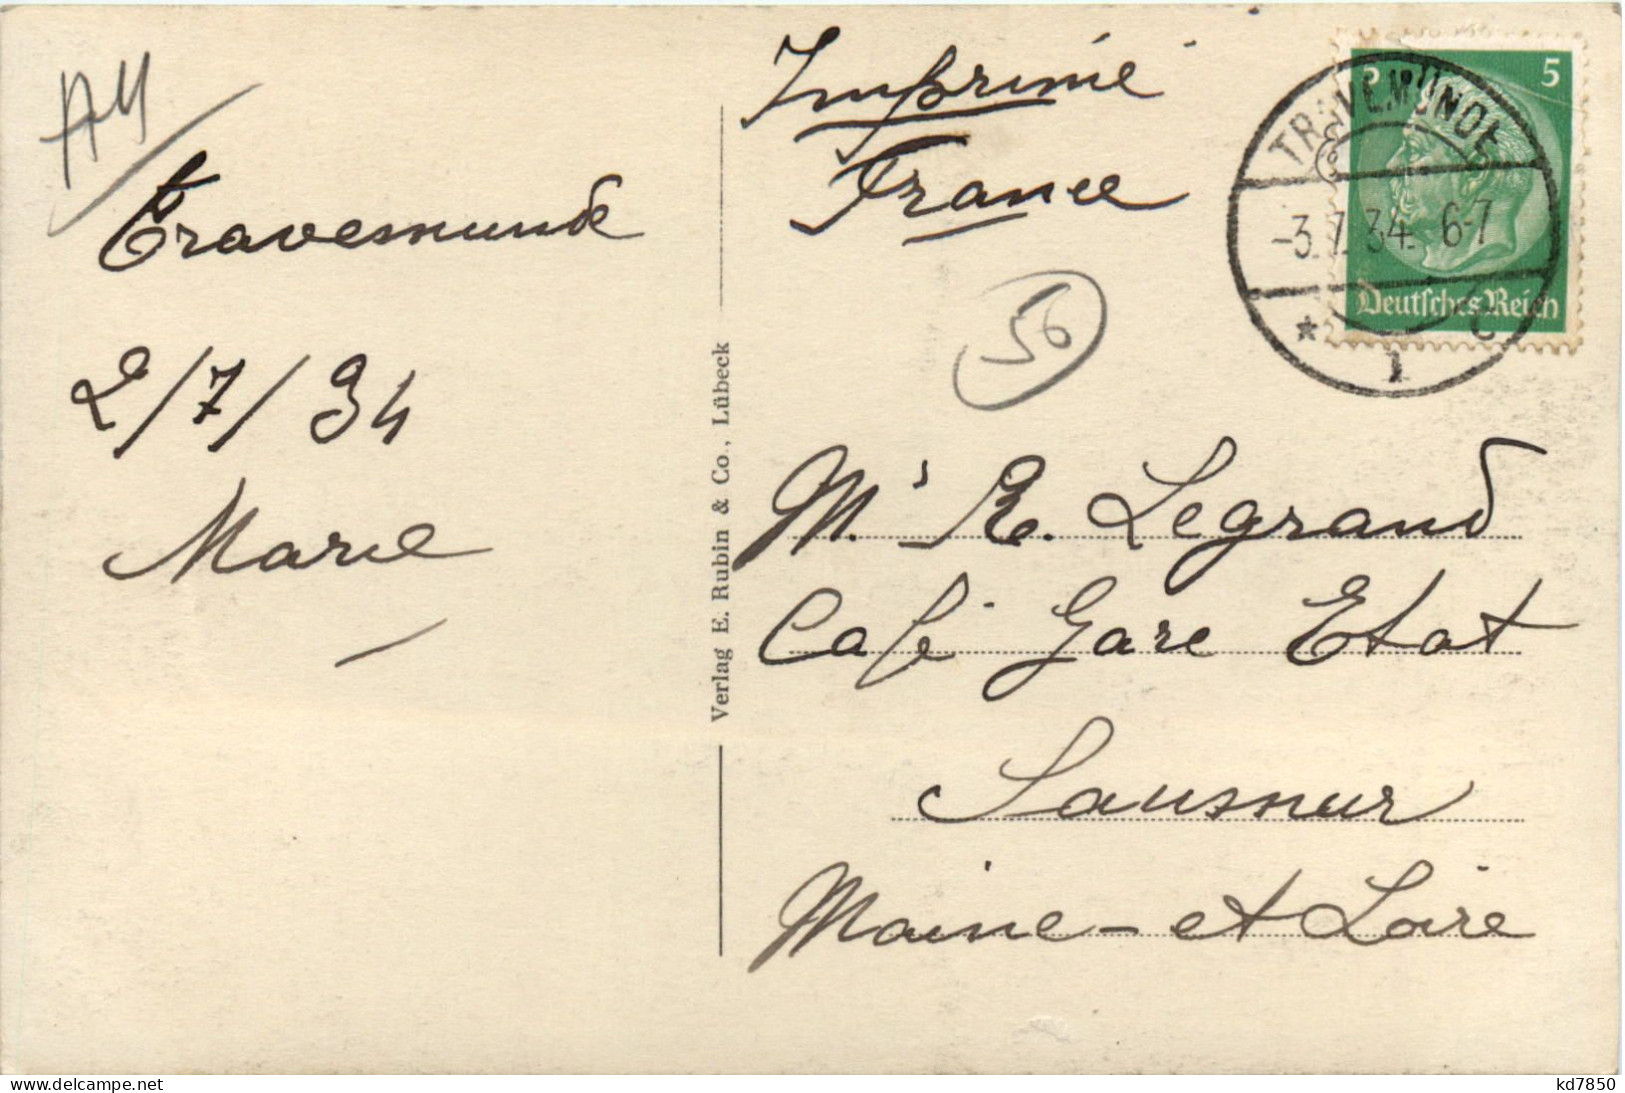 A4
Travemunde
2/7/34
Marie
Verlag E. Rubin & Co., Lübeck
Imprimé
France
56
5
5
Deutsches Reich
TRAVEMÜNDE
-3.7.34. 6-7
* 1 c
Mr R. Legrand
Café Gare Etat
Saumur
Maine-et Loire
delcampe.net
kd7850